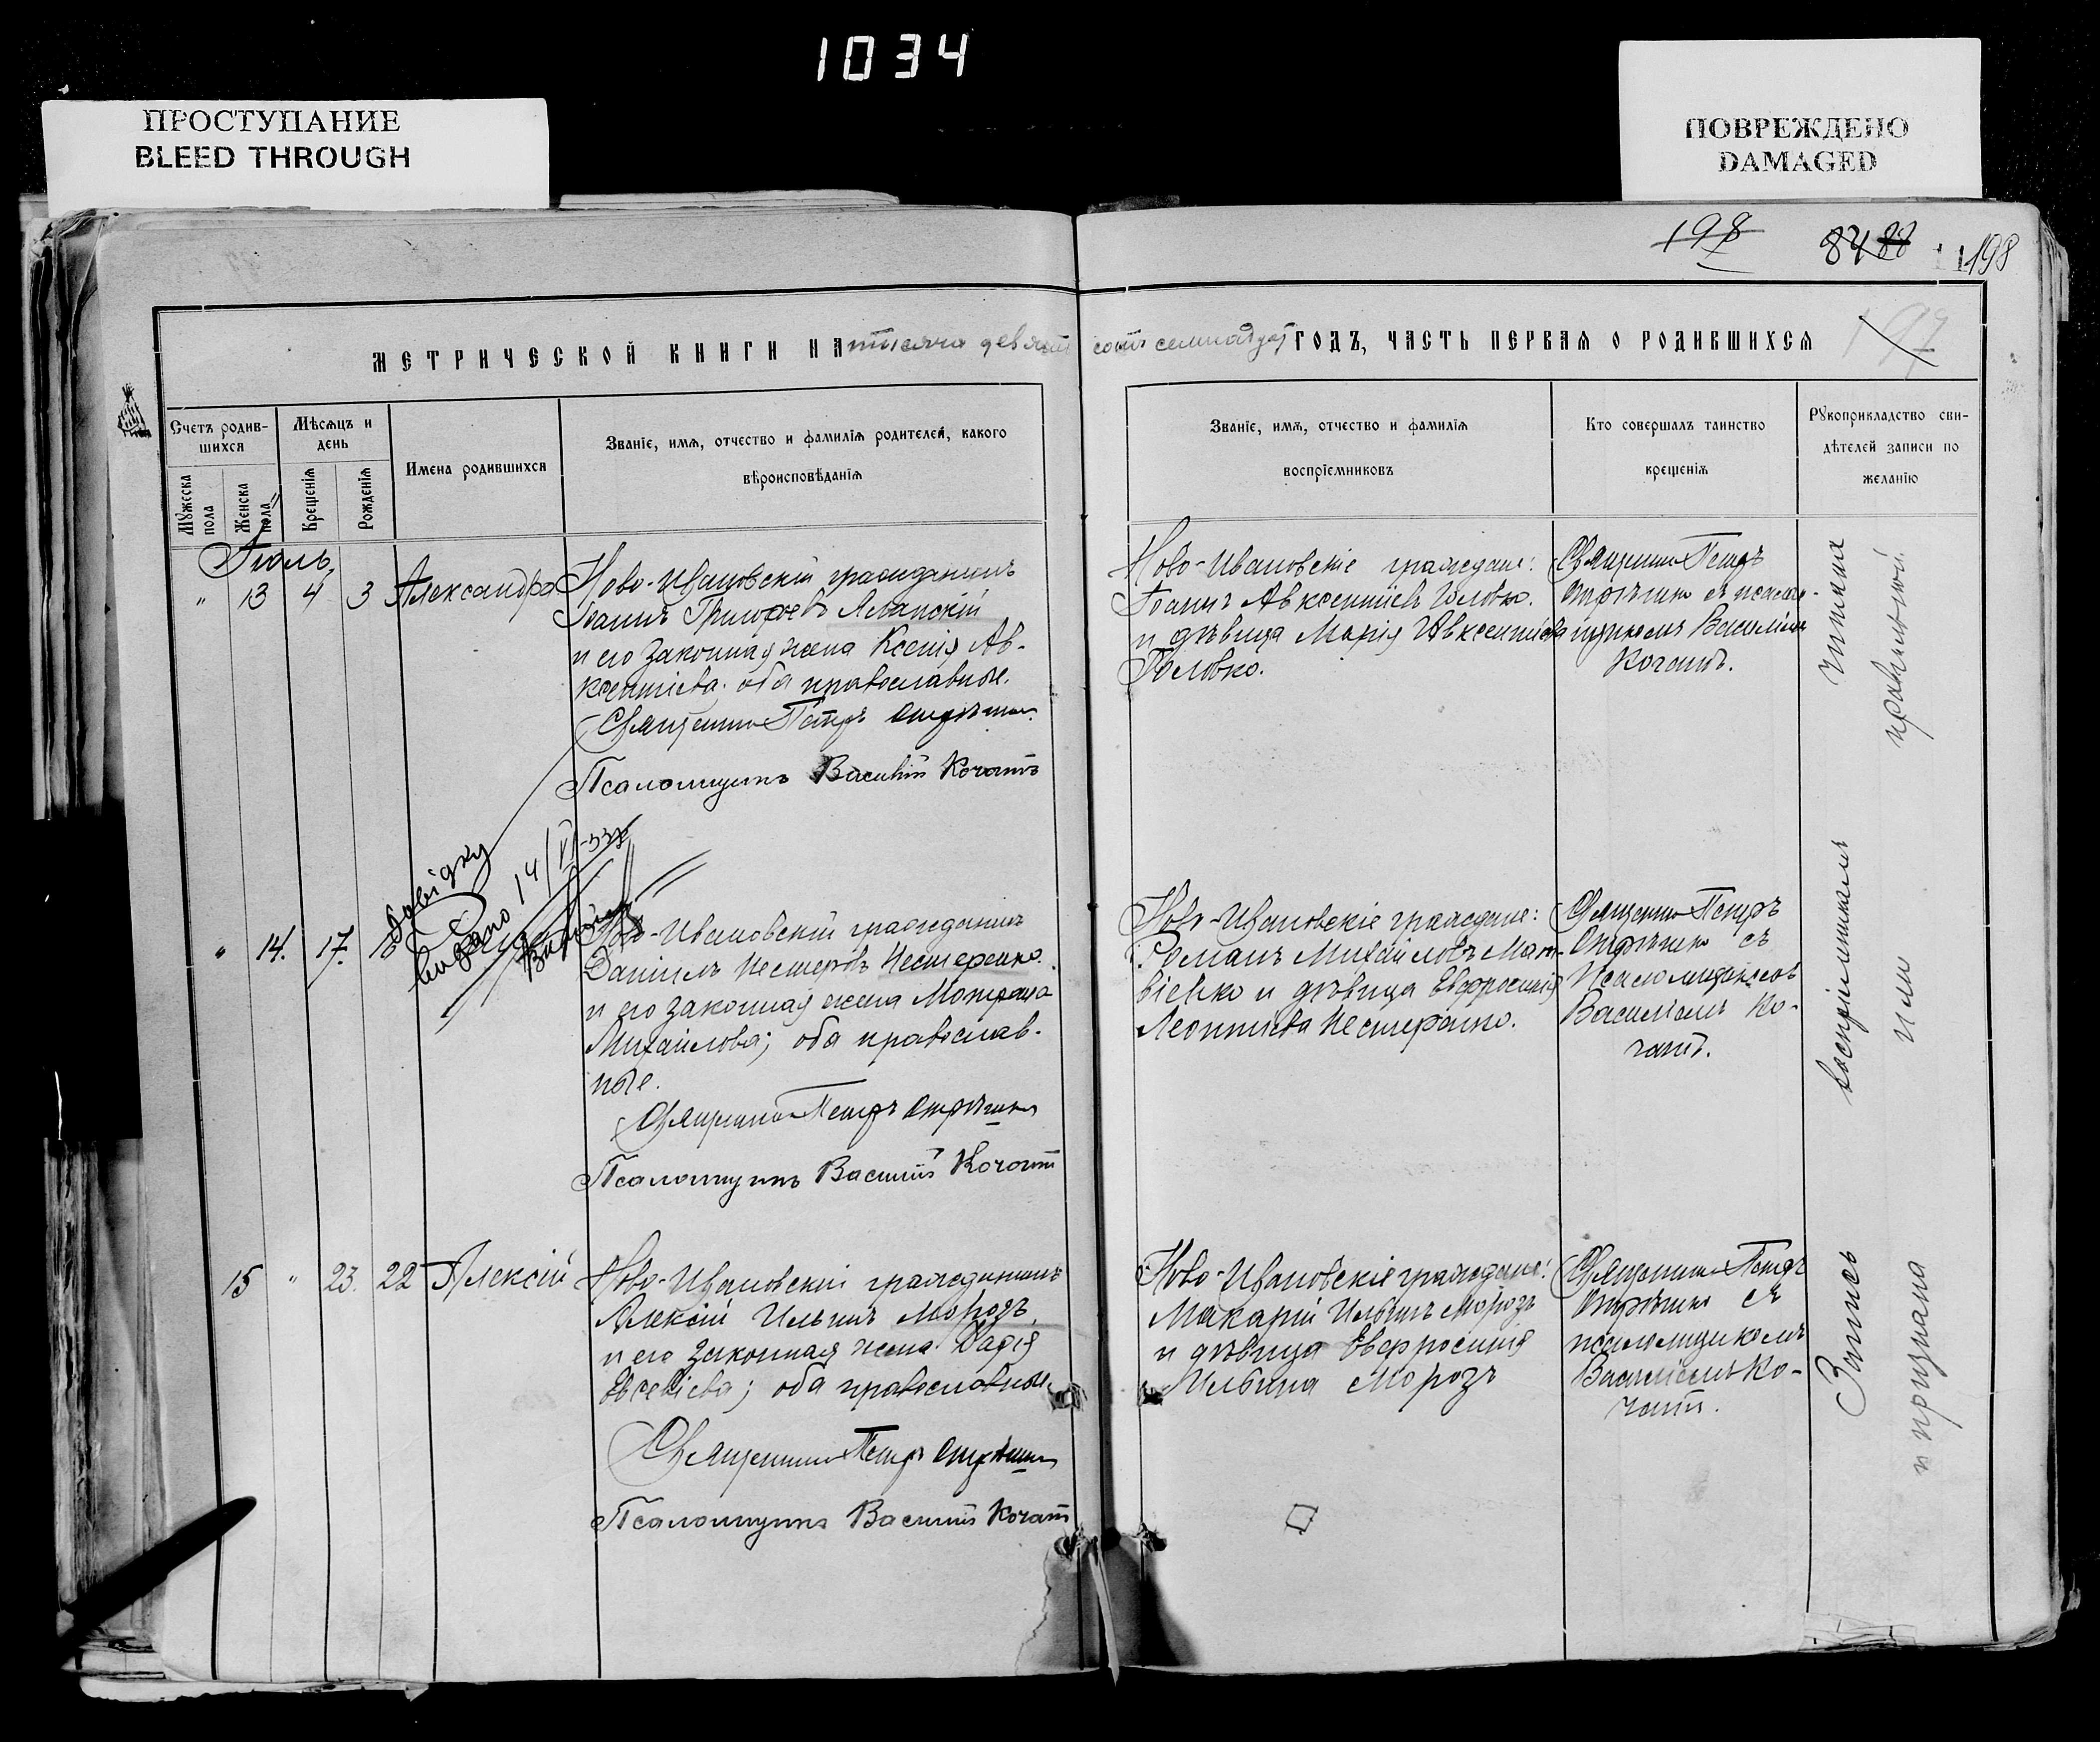 1034
ПРОСТУПАНИЕ
BLEED THROUGH
ПОВРЕЖДЕНО
DAMAGED
198
84 88
198
197
МЕТРИЧЕСКОЙ КНИГИ НА тысяча девять сотъ семнадцат ГОДЪ, ЧАСТЬ ПЕРВАЯ О РОДИВШИХСЯ
Счетъ родив-
шихся
Мужеска
пола
Женска
пола
Мѣсяцъ и
день
Крещенія
Рожденія
Имена родившихся
Званіе, имя, отчество и фамилія родителей, какого
вѣроисповѣданія
Званіе, имя, отчество и фамилія
воспріемниковъ
Кто совершалъ таинство
крещенія
Рукоприкладство сви-
дѣтелей записи по
желанію
Іюль.
" 13 4 3 Александра
Ново-Ивановскій гражданинъ
Іоаннъ Григорьевъ
и его законная жена Ксенія Ав-
ксентіева; оба православные.
Священникъ Петръ
Псаломщикъ Василій Кочатъ
Ново-Ивановскіе граждане:
Іоаннъ Авксентіевъ Головко.
и дѣвица Марія Авксентіева
Головко.
Священникъ Петръ
съ псалом-
щикомъ Василіемъ
Кочатъ.
" 14. 17. 16
Довідку
видано 14/VI-33
Ново-Ивановскій гражданинъ
Даніилъ Нестеровъ Нестеренко.
и его законная жена Мотрона
Михайлова; оба православ-
ные.
Священникъ Петръ
Псаломщикъ Василій Кочатъ
Ново-Ивановскіе граждане:
Романъ Михайловъ Мат-
віенко и дѣвица Евфросинія
Леонтіева Нестеренко.
Священникъ Петръ
съ
Псаломщикомъ
Василіемъ Ко-
чатъ.
15 " 23. 22 Алексій
Ново-Ивановскій гражданинъ
Алексій Ильинъ Морозъ
и его законная жена
Евсевіева; оба православные.
Священникъ Петръ
Псаломщикъ Василій Кочатъ
Ново-Ивановскіе граждане:
Макарій Ильинъ Морозъ
и дѣвица Евфросинія
Ильина Морозъ
Священникъ Петръ
съ
псаломщикомъ
Василіемъ Ко-
чатъ.
Запись воспріемникамъ читана
и признана ими правильной.